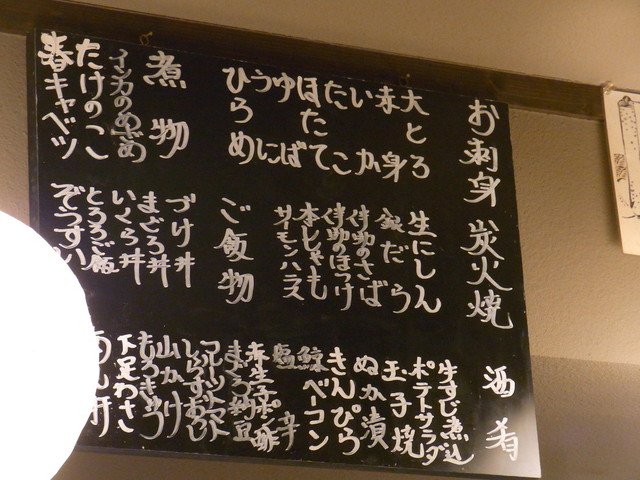 お刺身
大とろ
赤身
いか
たこ
ほたて
ゆば
うに
ひらめ
煮物
インカのめざめ
たけのこ
春キャベツ
炭火焼
生にしん
銀だら
伊助のさば
伊助のほっけ
本ししゃも
サーモンハラス
ご飯物
づけ丼
まぐろ丼
いくら丼
とろろご飯
ぞうすい
酒肴
牛すじ煮込
ポテトサラダ
玉子焼
ぬか漬
きんぴら
鯨ベーコン
塩辛
赤生子ポン酢
まぐろ納豆
しらすおろし
山かけ
もろきゅう
下足わさ